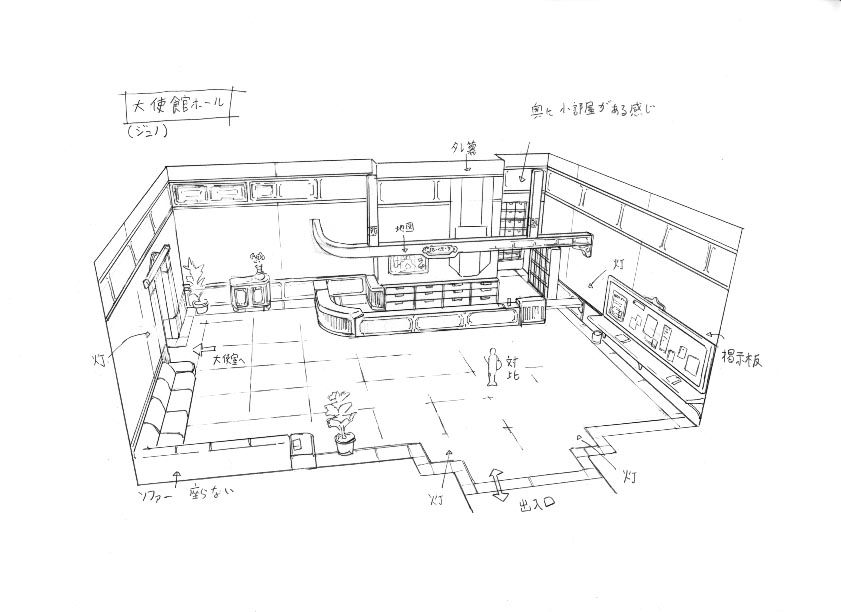 大使館ホール
(ジュノ)
奥に小部屋がある感じ
タレ幕
地図
灯
掲示板
灯
大使室へ
対比
ソファー 座らない
灯
出入口
灯